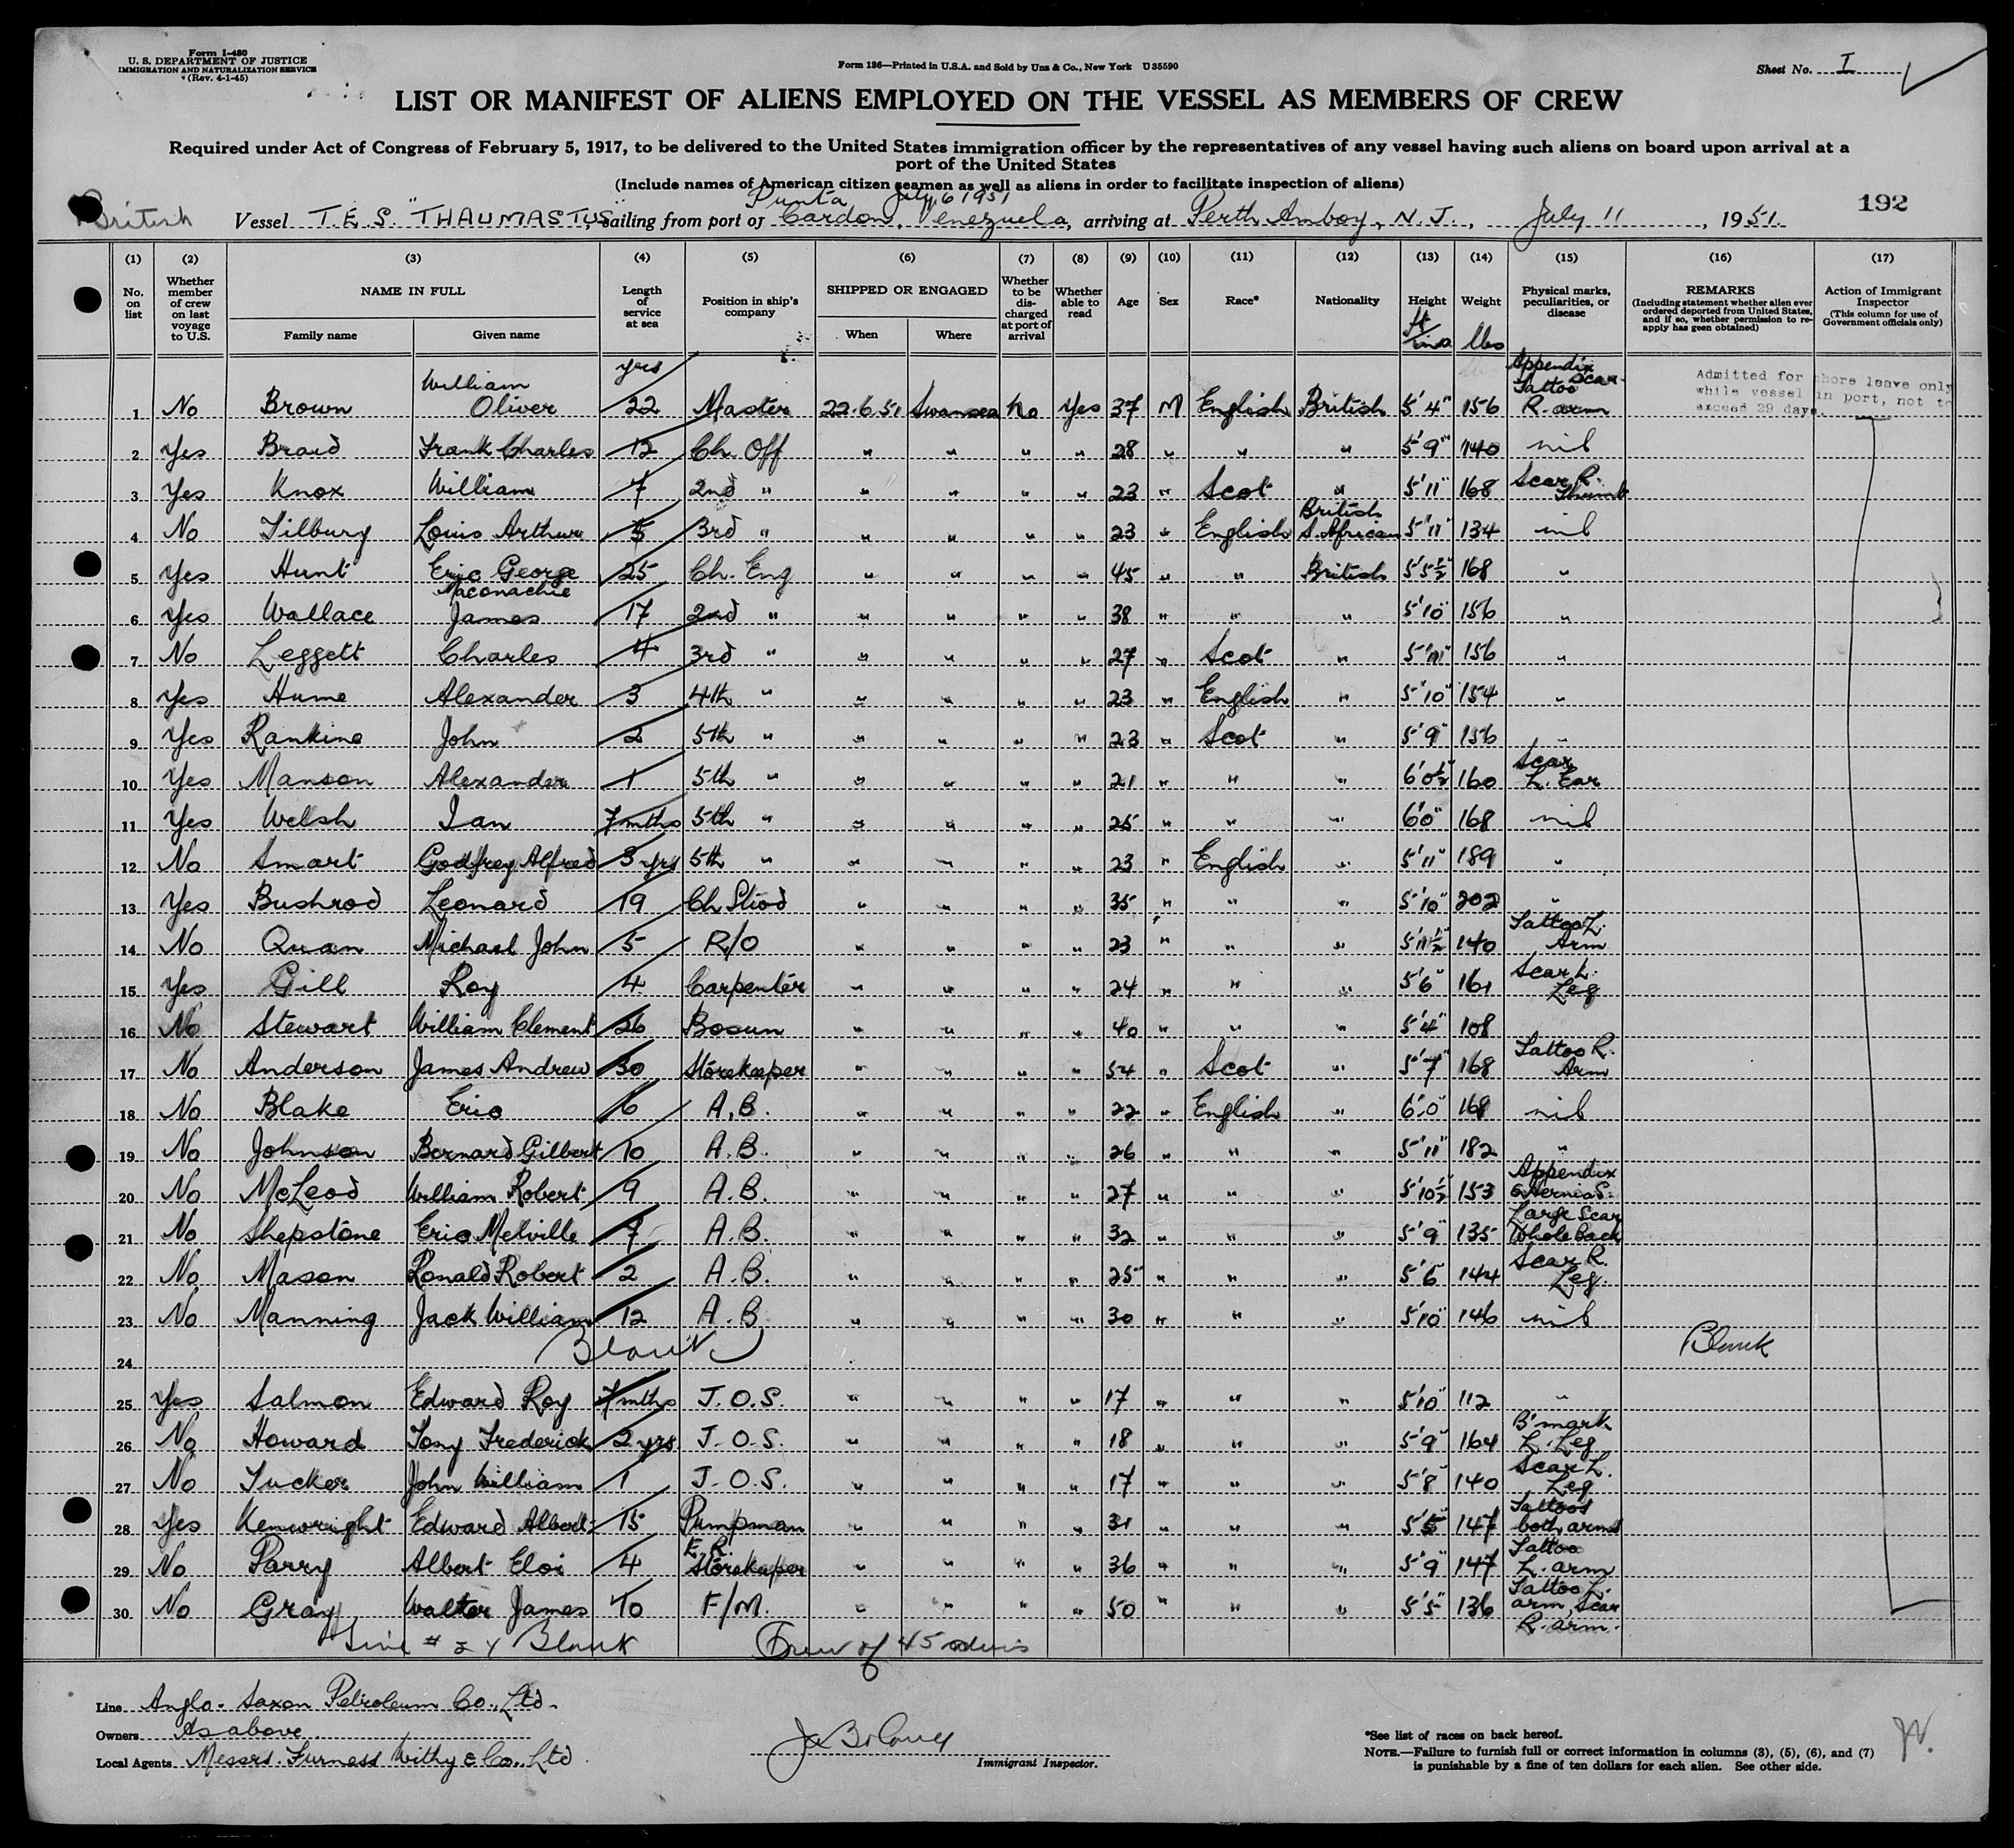 Form I-480
U. S. DEPARTMENT OF JUSTICE
IMMIGRATION AND NATURALIZATION SERVICE
(Rev. 4-1-45)
Form 136—Printed in U.S.A. and Sold by Unz & Co., New York U 35590
Sheet No. I
LIST OR MANIFEST OF ALIENS EMPLOYED ON THE VESSEL AS MEMBERS OF CREW
Required under Act of Congress of February 5, 1917, to be delivered to the United States immigration officer by the representatives of any vessel having such aliens on board upon arrival at a
port of the United States
(Include names of American citizen seamen as well as aliens in order to facilitate inspection of aliens)
192
Punta July 6 1951
British Vessel T.E.S. "THAUMASTUS", sailing from port of Cardon, Venezuela, arriving at Perth Amboy, N.J., July 11, 1951.
(1) (2) (3) (4) (5) (6) (7) (8) (9) (10) (11) (12) (13) (14) (15) (16) (17)
No. on list | Whether member of crew on last voyage to U.S. | NAME IN FULL | Family name | Given name | Length of service at sea | Position in ship's company | SHIPPED OR ENGAGED | When | Where | Whether to be discharged at port of arrival | Whether able to read | Age | Sex | Race* | Nationality | Height ft/ins | Weight lbs | Physical marks, peculiarities, or disease | REMARKS (Including statement whether alien ever ordered deported from United States, and if so, whether permission to reapply has geen obtained) | Action of Immigrant Inspector (This column for use of Government officials only)
yrs
Admitted for shore leave only
while vessel in port, not to
exceed 29 days.
1 No Brown William Oliver 22 Master 22.6.51 Swansea No Yes 37 M English British 5'4" 156 Appendix Scar Tattoo R. arm
2 Yes Braid Frank Charles 12 Ch. Off " " " " 28 " " " 5'9" 140 nil
3 Yes Knox William 7 2nd " " " " " 23 " Scot " 5'11" 168 Scar R. Thumb
4 No Tilbury Louis Arthur 5 3rd " " " " " 23 " English British S. African 5'11" 134 nil
5 Yes Hunt Eric George 25 Ch. Eng " " " " 45 " " British 5'5½" 168 "
6 Yes Wallace Maconachie James 17 2nd " " " " " 38 " " " 5'10" 156 "
7 No Leggett Charles 4 3rd " " " " " 27 " Scot " 5'11" 156 "
8 Yes Hume Alexander 3 4th " " " " " 23 " English " 5'10" 154 "
9 Yes Rankine John 2 5th " " " " " 23 " Scot " 5'9" 156 "
10 Yes Manson Alexander 1 5th " " " " " 21 " " " 6'0½" 160 Scar L. Ear
11 Yes Welsh Ian 7 mths 5th " " " " " 25 " " " 6'0" 168 nil
12 No Smart Godfrey Alfred 3 yrs 5th " " " " " 23 " English " 5'11" 189 "
13 Yes Bushrod Leonard 19 Ch Stiod " " " " 35 " " " 5'10" 202 "
14 No Quan Michael John 5 R/O " " " " 23 " " " 5'11½" 140 Tattoo L. Arm
15 Yes Gill Roy 4 Carpenter " " " " 24 " " " 5'6" 161 Scar L. Leg
16 No Stewart William Clement 26 Bosun " " " " 40 " " " 5'4" 108
17 No Anderson James Andrew 30 Storekeeper " " " " 54 " Scot " 5'7" 168 Tattoo R. Arm
18 No Blake Eric 6 A.B. " " " " 22 " English " 6'0" 168 nil
19 No Johnson Bernard Gilbert 10 A.B. " " " " 26 " " " 5'11" 182 "
20 No McLeod William Robert 9 A.B. " " " " 27 " " " 5'10½" 153 Appendix & Hernia S.
21 No Shepstone Eric Melville 7 A.B. " " " " 32 " " " 5'9" 135 Large Scar Whole Back
22 No Mason Ronald Robert 2 A.B. " " " " 25 " " " 5'6" 144 Scar R. Leg.
23 No Manning Jack William 12 A.B. " " " " 30 " " " 5'10" 146 nil
24 Blank Blank
25 Yes Salmon Edward Roy 7 mths J.O.S. " " " " 17 " " " 5'10" 112 "
26 No Howard Tony Frederick 2 yrs J.O.S. " " " " 18 " " " 5'9" 164 B'mark L. Leg
27 No Tucker John William 1 J.O.S. " " " " 17 " " " 5'8" 140 Scar L. Leg
28 Yes Kenwright Edward Albert 15 Pumpman " " " " 31 " " " 5'5" 147 Tattoos both arms
29 No Parry Albert Eloi 4 E.R. Storekeeper " " " " 36 " " " 5'9" 147 Tattoo L. arm
30 No Gray Walter James 10 F/M. " " " " 50 " " " 5'5" 136 Tattoo L. arm, Scar R. arm.
Line # 24 Blank Crew of 45
Line Anglo-Saxon Petroleum Co., Ltd.
Owners As above
Local Agents Messrs. Furness Withy & Co., Ltd
Immigrant Inspector.
*See list of races on back hereof.
NOTE.—Failure to furnish full or correct information in columns (3), (5), (6), and (7)
is punishable by a fine of ten dollars for each alien. See other side.